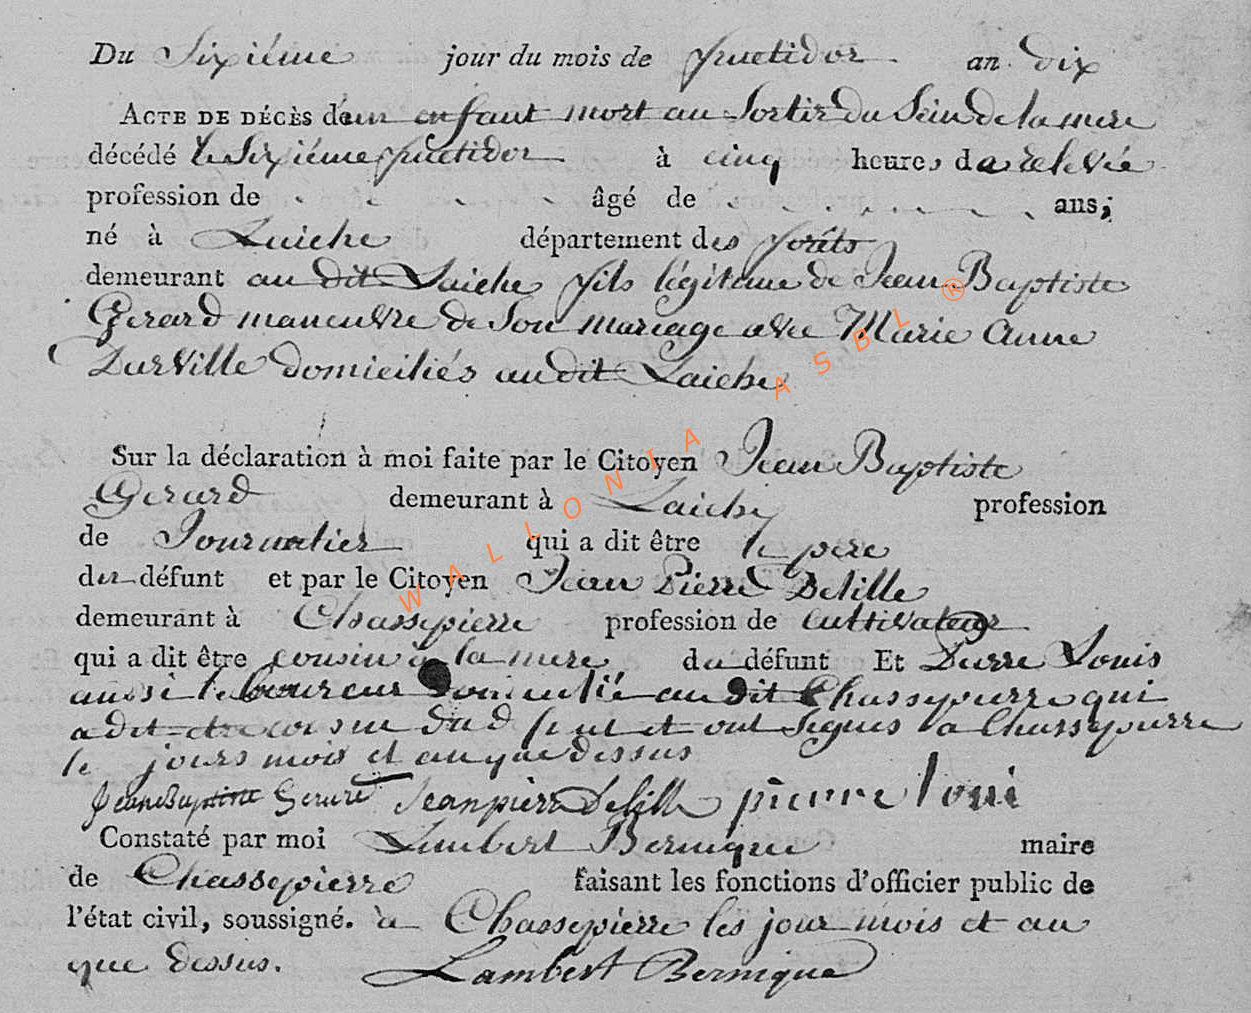 Du Sixiéme jour du mois de fructidor an dix
ACTE DE DÉCÈS d'un enfant mort au Sortir du Sein de la mere
décédé le Sixiéme fructidor à cinq heures da relevée
profession de âgé de ans;
né à Laiche département des forêts
demeurant au dit Laiche fils légitime de Jean Baptiste
Gerard maneuvre de Son mariage avec Marie Anne
Durville domiciliés au dit Laiche
Sur la déclaration à moi faite par le Citoyen Jean Baptiste
Gerard demeurant à Laiche profession
de Journalier qui a dit être le pere
du défunt et par le Citoyen Jean Pierre Delille
demeurant à Chassepierre profession de cultivateur
qui a dit être cousin à la mere du défunt Et Pierre Louis
aussi laboureur domicilié au dit Chassepierre qui
a dit etre cousin du d funt et ont Signés a Chassepierre
le jours mois et an que dessus
Jean Baptiste Gerard Jean pierre Delille pierre loui
Constaté par moi Lambert Bernique maire
de Chassepierre faisant les fonctions d'officier public de
l'état civil, soussigné. à Chassepierre les jour mois et an
que dessus. Lambert Bernique
WALLONIA ASBL ®